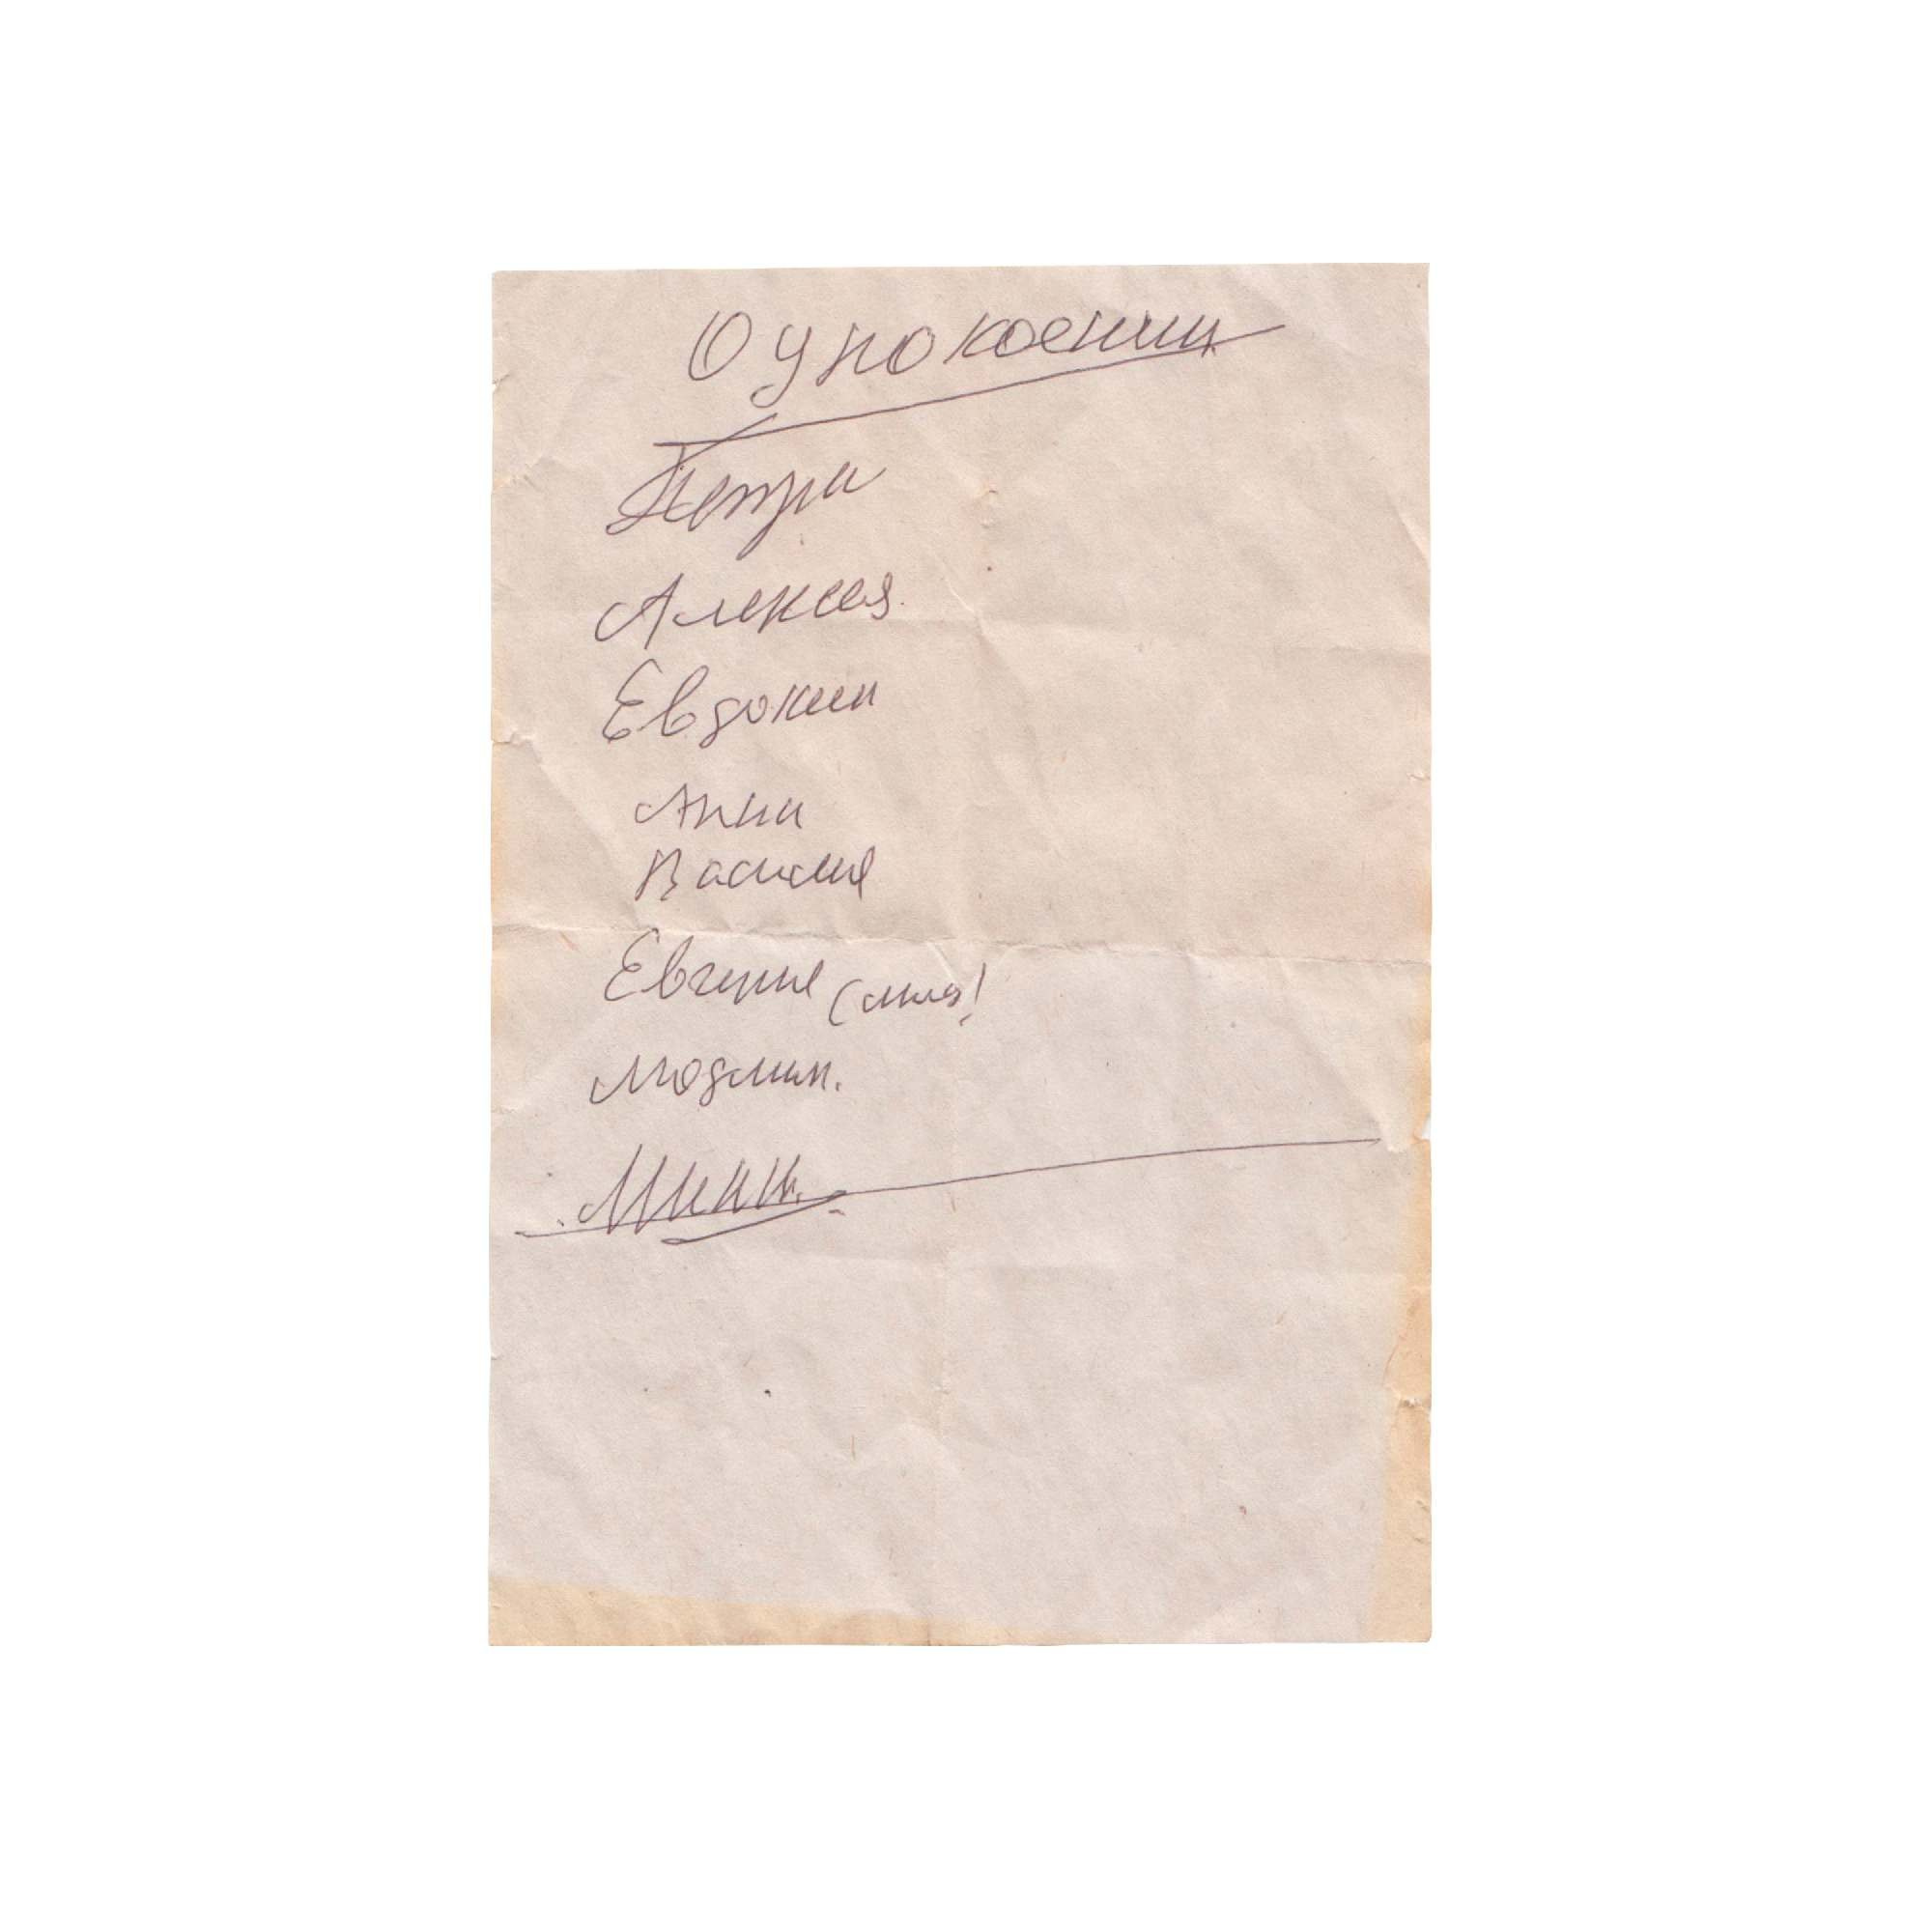 О упокоении
Петра
Алексея.
Евдокии
Анны
Василия
Евгения
Людмил.